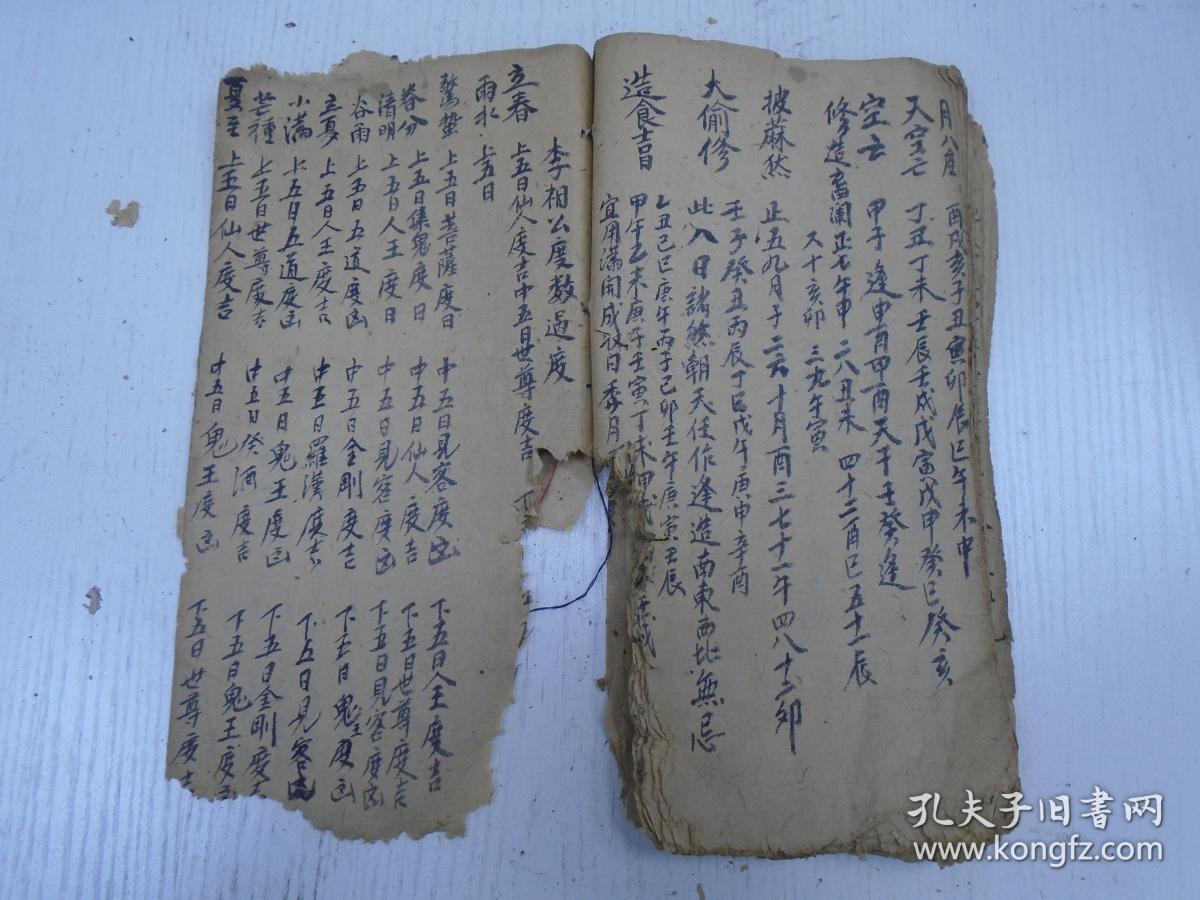 月八座 酉戌亥子丑寅卯辰巳午未申
天空亡 丁丑丁未壬辰壬戌戊寅戊申癸巳癸亥
空亡 甲子逢申酉甲酉天干壬癸逢
修造畜闌正七午申 二八丑未 四十二酉巳五十一辰
又十亥卯 三九午寅
披蔴煞 正五九月子二六十月酉三七十一午四八十二卯
大偷修 壬子癸丑丙辰丁巳戊午庚申辛酉
此八日諸煞朝天任作逢造南東西北無忌
造倉吉日 乙丑己巳庚午丙子己卯壬午庚寅壬辰
甲午乙未庚子壬寅丁未甲戌
宜用滿開成收日季月
李相公度數過度
立春 上五日仙人度吉中五日世尊度吉 下
雨水 上五日
驚蛰 上五日菩薩度日 中五日見客度凶 下五日人王度吉
春分 上五日集鬼度日 中五日仙人度吉 下五日世尊度吉
清明 上五日人王度日 中五日見客度凶 下五日見客度凶
谷雨 上五日五道度凶 中五日金剛度吉 下五日鬼王度凶
立夏 上五日人王度吉 中五日羅漢度吉 下五日見客凶
小滿 上五日五道度凶 中五日鬼王度凶 下五日金剛度吉
芒種 上五日世尊度吉 中五日癸酒度吉 下五日鬼王度凶
夏至 上五日仙人度吉 中五日鬼王度凶 下五日世尊度吉
孔夫子旧书网
www.kongfz.com